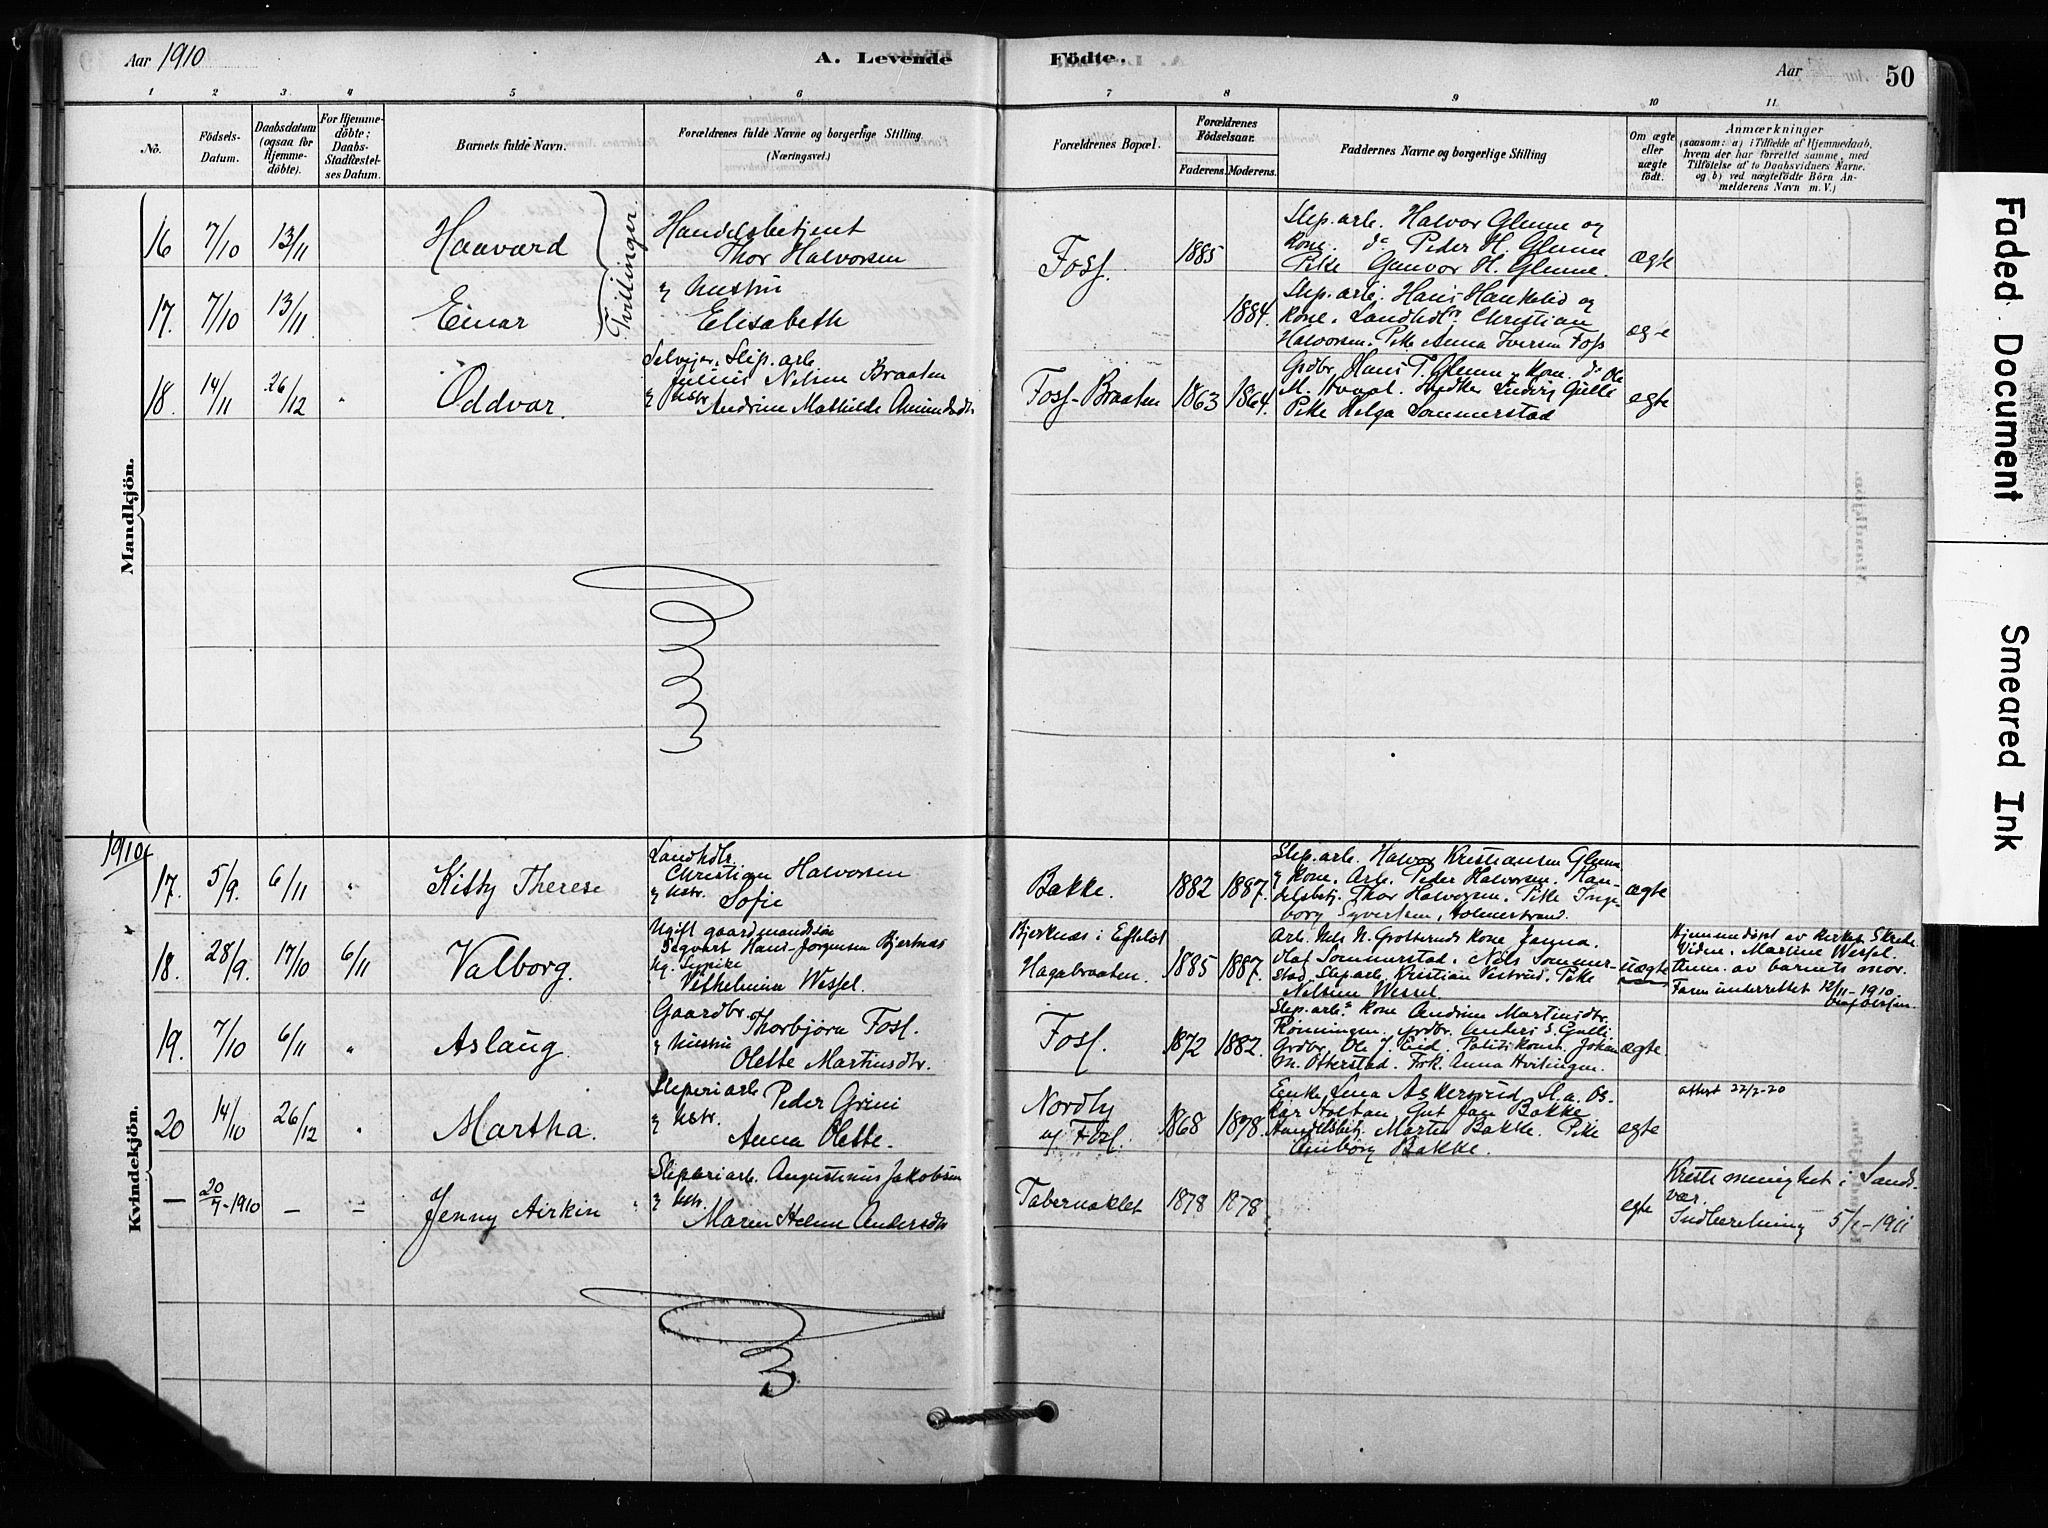 Aar 1910
A. Levende Födte.
Aar 50
1 2 3 4 5 6 7 8 9 10 11
No.
Födsels-Datum.
Daabsdatum (ogsaa for Hjemmedöbte).
For Hjemmedöbte; Daabs-Stadfæstelses Datum.
Barnets fulde Navn.
Forældrenes fulde Navne og borgerlige Stilling.
(Næringsvei.)
Forældrenes Bopæl.
Forældrenes Födselsaar.
Faderens. Moderens.
Faddernes Navne og borgerlige Stilling
Om ægte eller uægte födt.
Anmærkninger
(saasom: a) i Tilfælde af Hjemmedaab,
hvem der har forrettet samme, med
Tilföielse af to Daabsvidners Navne.
og b) ved uægtefödte Börn An-
melderens Navn m. V.)
Mandkjön.
16 7/10 13/11 Haavard
Tvillinger.
Handelsbetjent
Thor Halvorsen
Foss. 1885
Slip.arb. Halvor Glenne og
Kone. do Peder H. Glenne
Pike Gunvor H. Glenne.
ægte
17. 7/10 13/11 Einar
& Hustru
Elisabeth
1884.
Slip.arb. Hans Hankelid og
Kone. Landhdlr Christian
Halvorsen. Pike Anna Iversen Foss
ægte
18. 14/11 26/12 " Oddvar.
Selveier, Slip.arb
Julius Nilsen Braaten
& Hstr. Andrine Mathilde Amundsdtr
Foss-Braaten 1863 1864.
Grdbr. Hans T. Glenne & Kone. do Ole
Ludvig Gulli
Pike Helga Sommerstad
egte
1910
Kvindekjön.
17. 5/9. 6/11 " Kitty Therese
Landhdlr.
Christian Halvorsen
& Hstr. Sofie
Bakke. 1882 1887.
Slip.arb. Halvor Kristiansen Glenne
& Kone. Arb. Peder Halvorsen. Han-
delsbetj. Thor Halvorsen. Pike Inge-
borg Syvertsen, Holmestrand.
ægte
18. 28/9. 17/10 6/11 Valborg.
Ugift gaardmandssøn
Sigvart Hans-Jørgensen Bjerknæs
og Pike
Vilhelmine Wessel.
Bjerknæs i Efteløt
Hagabraaten. 1885 1887.
Arb. Nils N. Grotterud & Kone Janna.
Olaf Sommerstad. Nils Sommer-
stad. Slip.arb. Kristian Vestrud. Pike
Nilsine Wessel.
uægte
Hjemmedøpt av
Vidne. Martine Wessel.
Anm. av barnets mor.
Faren underrettet 12/11-1910
19. 7/10 6/11 " Aslaug.
Gaardbr.
Thorbjørn Foss.
& Hustru
Olette Martinsdtr.
Foss. 1872 1882.
Slip.arb. Kone Andrine Martinsdtr.
Rønningen. Grdbr. Anders S. Gulli
Grdbr. Ole J. Eid. Politikonst. Johan
M. Otterstad. Frk. Anna Hvitingen.
ægte.
20 14/10 26/12 " Martha.
Sliperiarb. Peder Grini
& Hstr.
Anna Olette.
Nordby
og Foss. 1868 1878.
Enke Lena Askerud, Sl.a. Os-
kar Holtan, Gut Jan Bakke
Handelsbetj. Martin Bakke. Pike
Aanborg Bakke.
egte
attest 22/2-20
— 20/7-1910 — — Jenny Airkin
Sliperiarb. Augustinus Jakobsen
& Hstr.
Maren Helene Andersdtr
Tabernaklet 1878 1878
egte
Kristi menighet i Sands-
vær.
Indberetning 5/1-1911
Faded Document
Smeared Ink